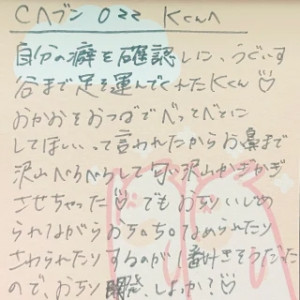 Cヘブン 022 Kくんへ
自分の癖を確認しに、うぐいす
谷まで足を運んでくれたKくん♡
おかおをおつばでべっとべとに
してほしいって言われたからお鼻まで
沢山べろべろして匂い沢山かぎかぎ
させちゃった♡でもおちりいじめ
られながらおちちなめられたり
さわられたりするのが1番好きそうだった
ので、おちり開発、しよっか?♡